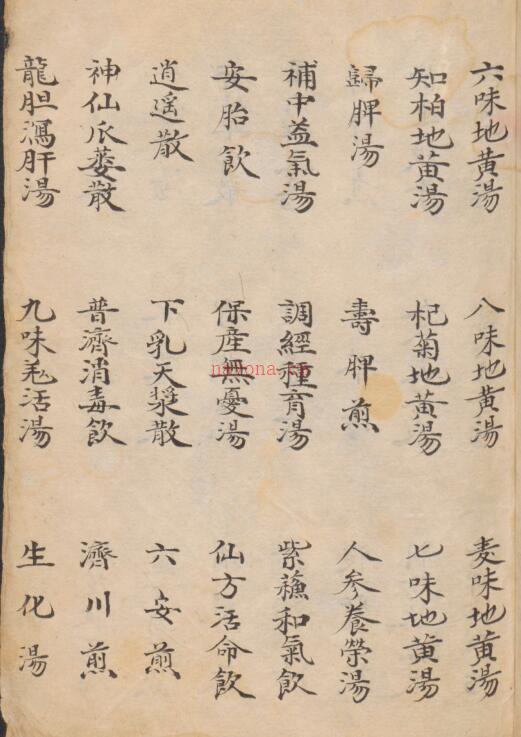 六味地黄湯
八味地黄湯
麦味地黄湯
知柏地黄湯
杞菊地黄湯
七味地黄湯
歸脾湯
壽脾煎
人参養榮湯
補中益氣湯
調經種育湯
紫蘓和氣飲
安胎飲
保産無憂湯
仙方活命飲
逍遥散
下乳天漿散
六安煎
神仙瓜蒌散
普濟消毒飲
濟川煎
龍胆瀉肝湯
九味羌活湯
生化湯